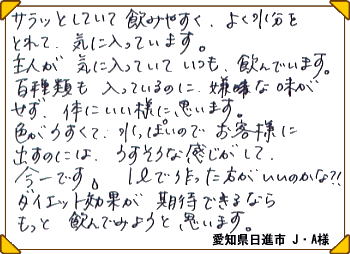 サラッとしていて飲みやすく、よく水分を
とれて、気に入っています。
主人が気に入っていていつも、飲んでいます。
百種類も入っているのに、嫌味な味が
せず、体にいい様に思います。
色がうすくて、水っぽいのでお客様に
出すのには、うすそうな感じがして、
今一です。1lで作った方がいいのかな?!
ダイエット効果が期待できるなら
もっと飲んでみようと思います。
愛知県日進市 J・A様